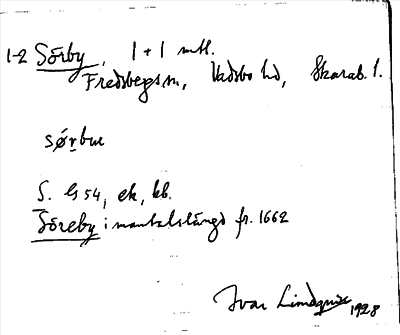 1-2 Sörby, 1+1 mtl.
Fredsbergs sn, Vadsbo hd, Skarab. l.
sørbw
S. Gs 54, ek, kb.
Söreby i mantalslängd fr. 1662
Ivar Lindquist 1928